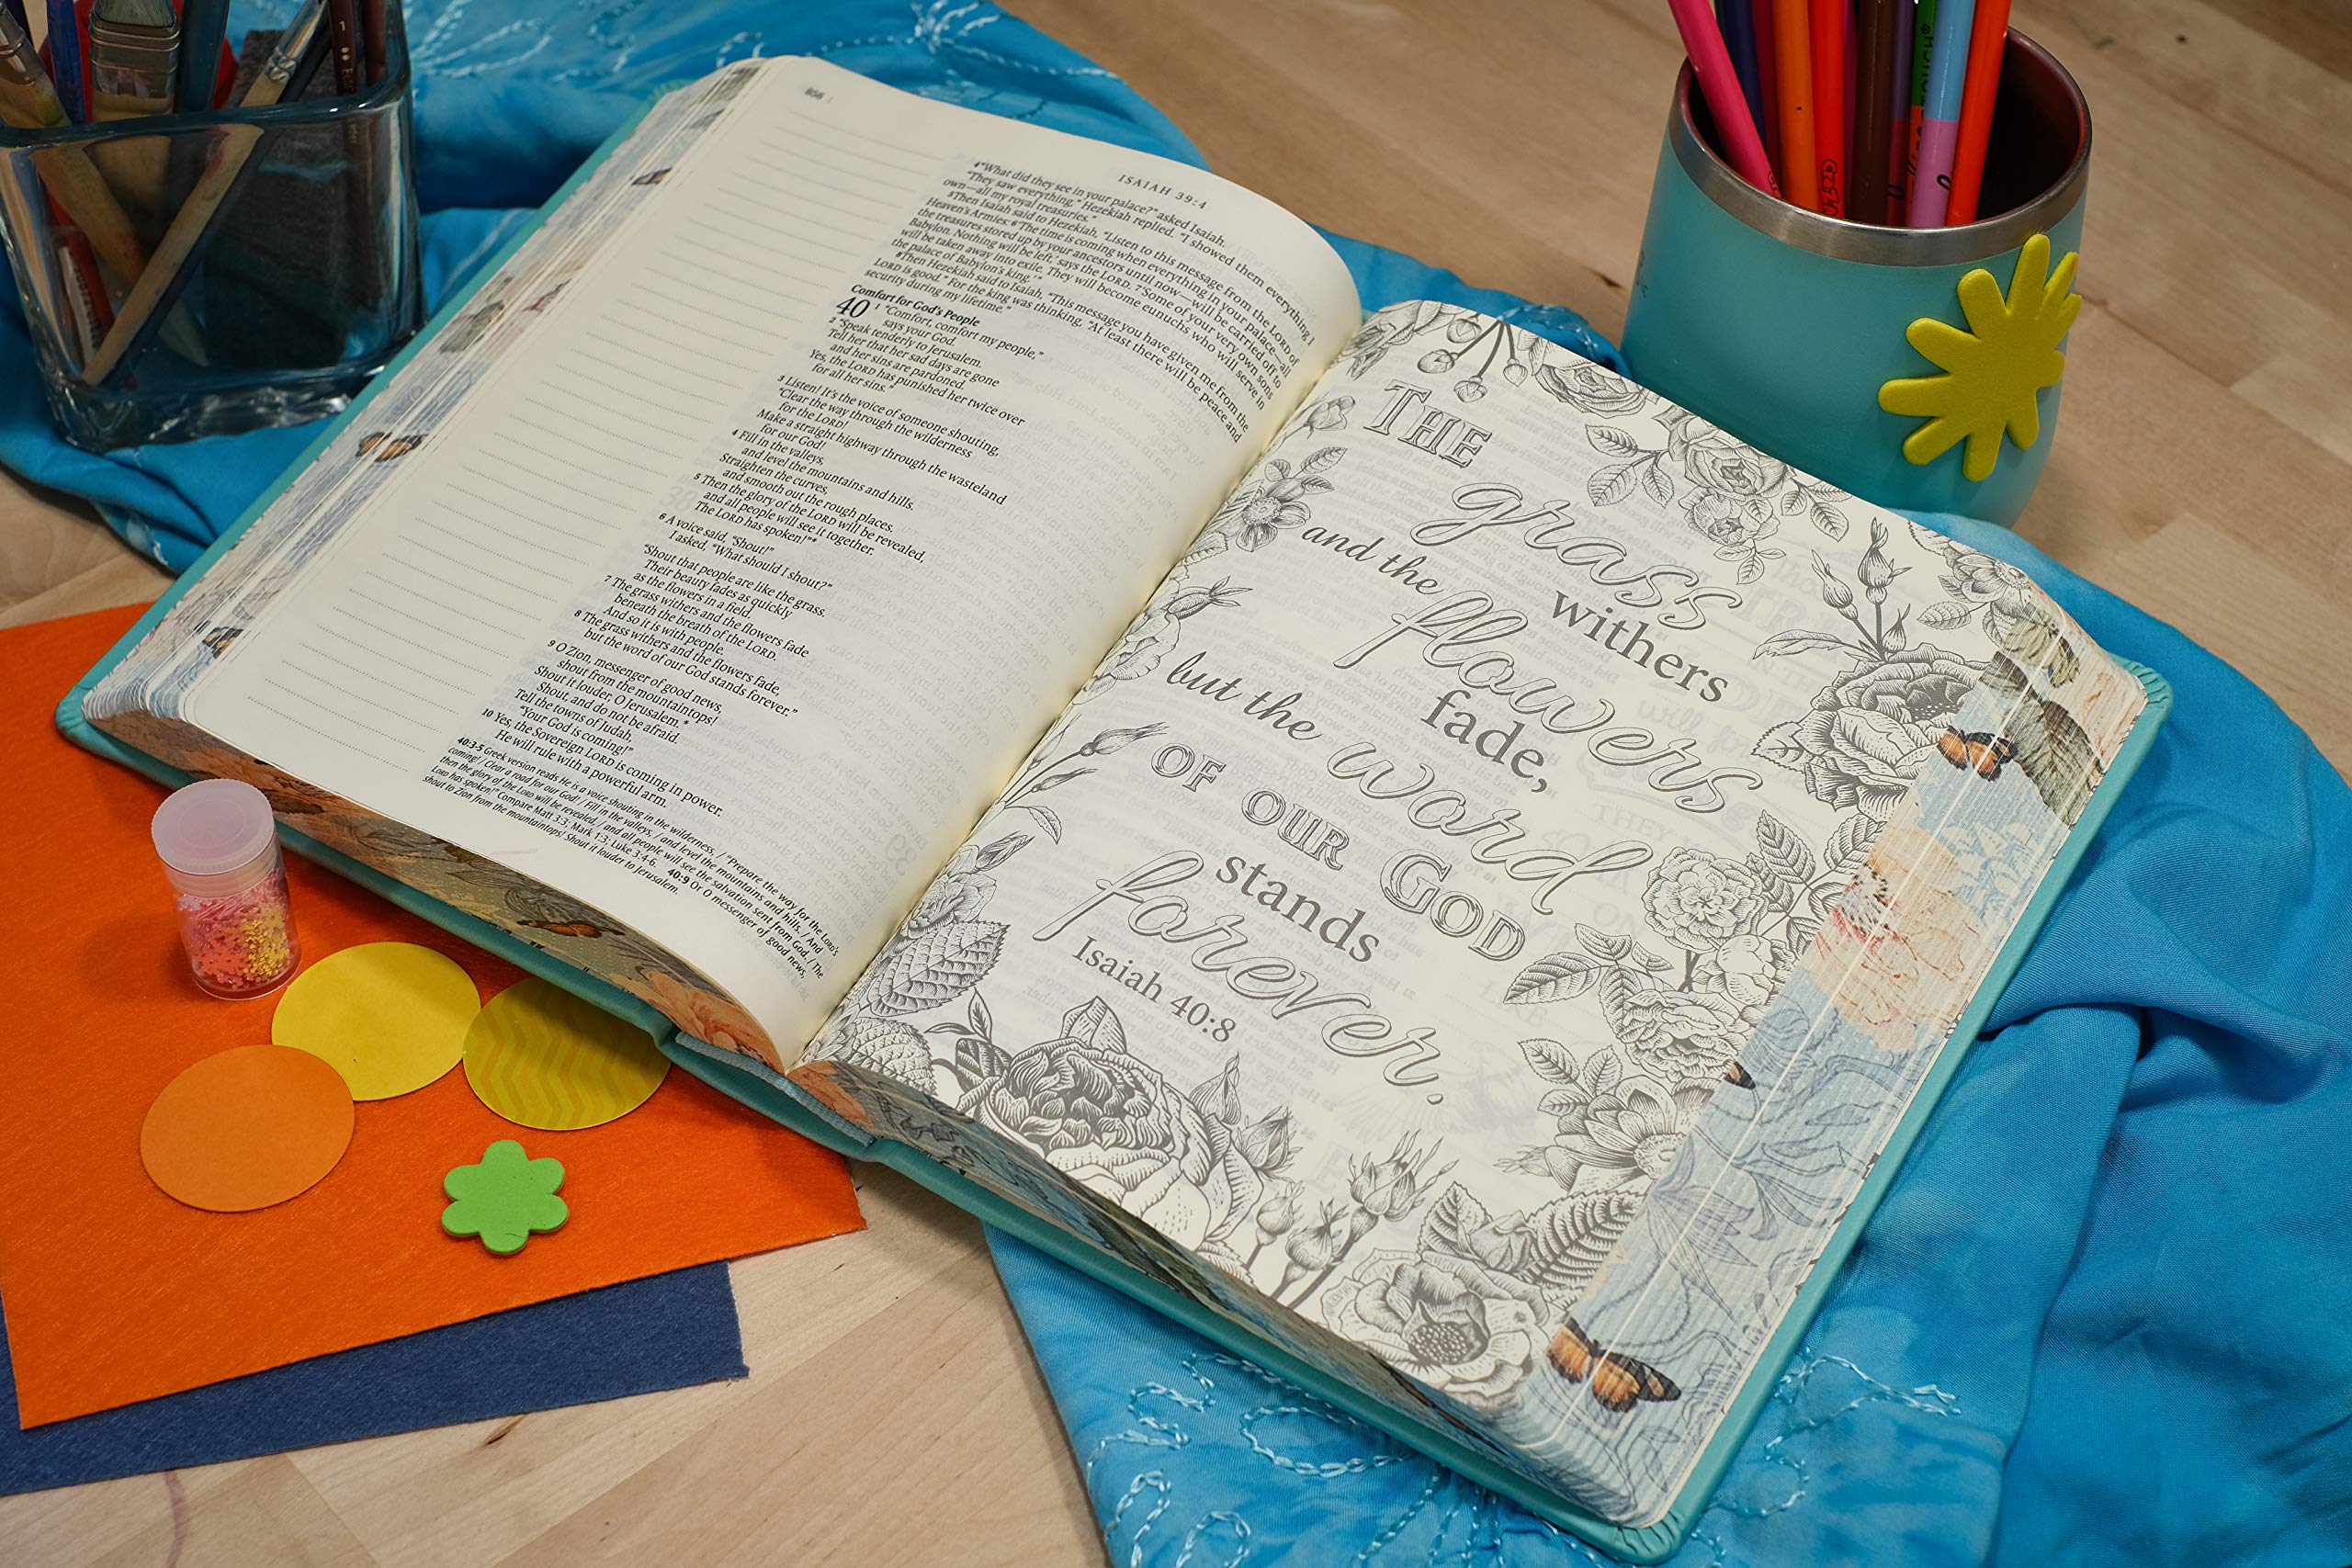 856
ISAIAH 39:4
4 "What did they see in your palace?" asked Isaiah.
"They saw everything," Hezekiah replied. "I showed them everything I
own—all my royal treasuries."
5 Then Isaiah said to Hezekiah, "Listen to this message from the LORD of
Heaven's Armies: 6 'The time is coming when everything in your palace—all
the treasures stored up by your ancestors until now—will be carried off to
Babylon. Nothing will be left,' says the LORD. 7 'Some of your very own sons
will be taken away into exile. They will become eunuchs who will serve in
the palace of Babylon's king.'"
8 Then Hezekiah said to Isaiah, "This message you have given me from the
LORD is good." For the king was thinking, "At least there will be peace and
security during my lifetime."
Comfort for God's People
40 1 "Comfort, comfort my people,"
says your God.
2 "Speak tenderly to Jerusalem.
Tell her that her sad days are gone
and her sins are pardoned.
Yes, the LORD has punished her twice over
for all her sins."
3 Listen! It's the voice of someone shouting,
"Clear the way through the wilderness
for the LORD!
Make a straight highway through the wasteland
for our God!
4 Fill in the valleys,
and level the mountains and hills.
Straighten the curves,
and smooth out the rough places.
5 Then the glory of the LORD will be revealed,
and all people will see it together.
The LORD has spoken!"*
6 A voice said, "Shout!"
I asked, "What should I shout?"
"Shout that people are like the grass.
Their beauty fades as quickly
as the flowers in a field.
7 The grass withers and the flowers fade
beneath the breath of the LORD.
And so it is with people.
8 The grass withers and the flowers fade,
but the word of our God stands forever."
9 O Zion, messenger of good news,
shout from the mountaintops!
Shout it louder, O Jerusalem.*
Shout, and do not be afraid.
Tell the towns of Judah,
"Your God is coming!"
10 Yes, the Sovereign LORD is coming in power.
He will rule with a powerful arm.
40:3-5 Greek version reads He is a voice shouting in the wilderness, / "Prepare the way for the LORD's
coming! / Clear a road for our God! / Fill in the valleys, / and level the mountains and hills. / And
then the glory of the LORD will be revealed, / and all people will see the salvation sent from God. / The
LORD has spoken!" Compare Matt 3:3; Mark 1:3; Luke 3:4-6. 40:9 Or O messenger of good news,
shout to Zion from the mountaintops! Shout it louder to Jerusalem.
THE
grass
withers
and the
flowers
fade,
but the word
OF OUR GOD
stands
forever.
Isaiah 40:8